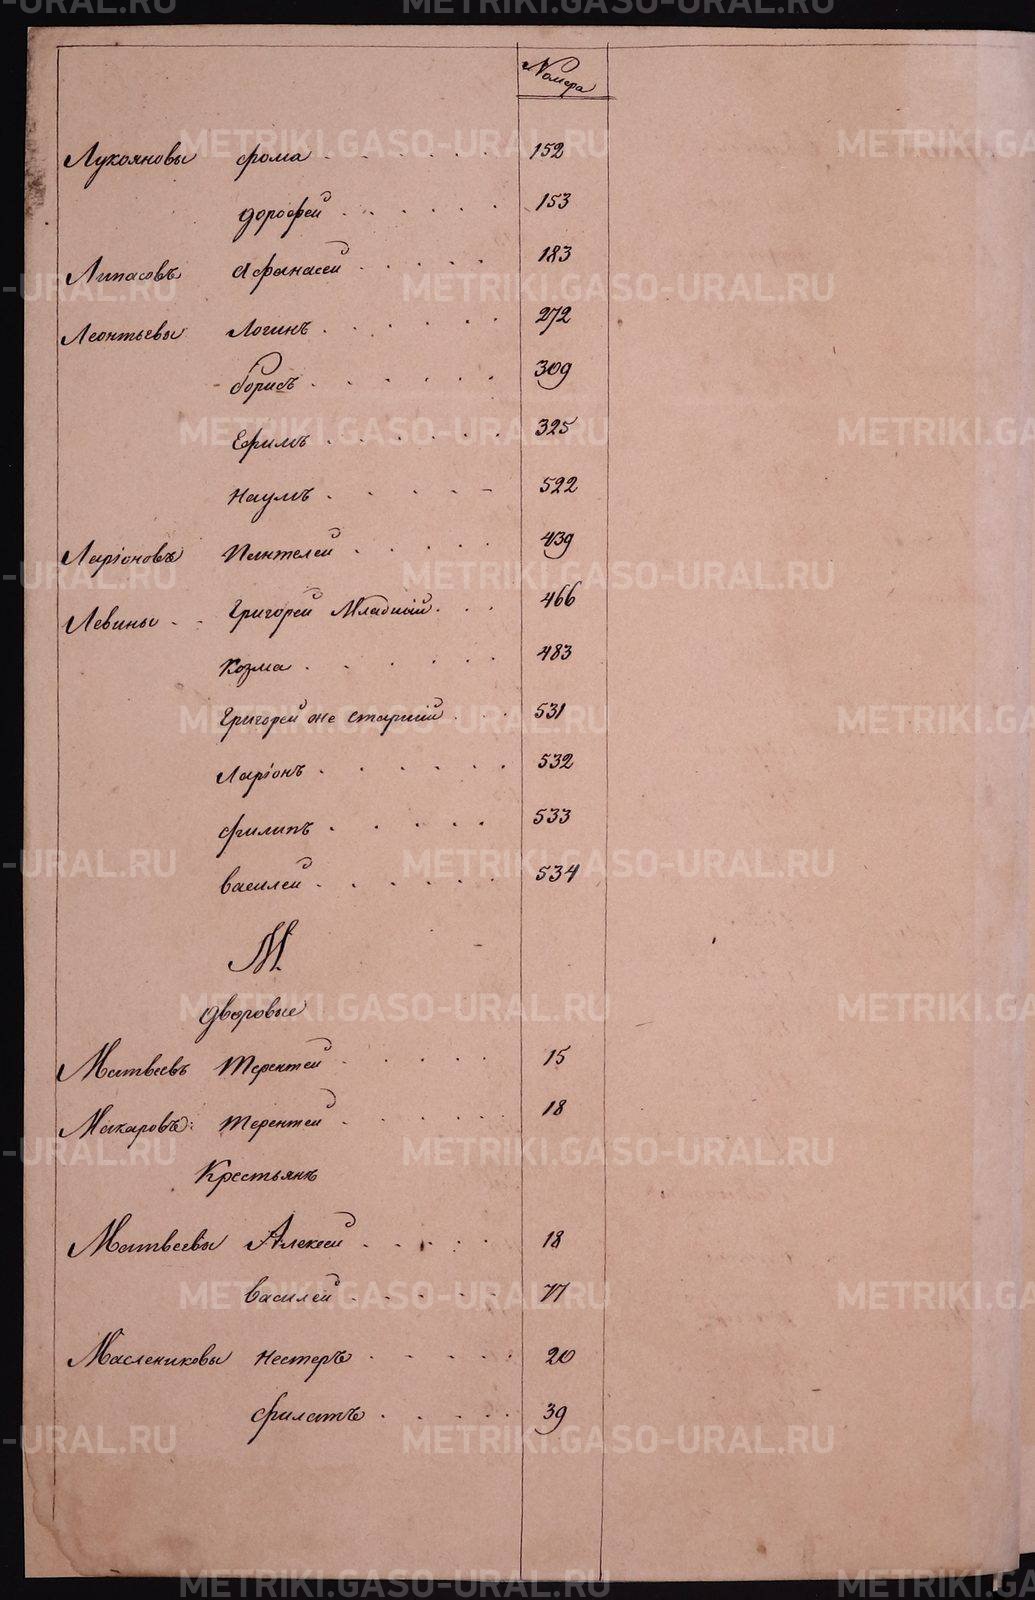 Номера
Лукояновы Фома . . . . . . 152
Дорофей . . . . . . 153
Липасовъ Афанасей . . . . . 183
Леонтьевы Логинъ . . . . . . 272
Борисъ . . . . . . 309
Ефимъ . . . . . . 325
Наумъ . . . . . 522
Ларіоновъ Пантелей . . . . . 439
Левины Григорей Младшій . . . 466
Козма . . . . . . 483
Григорей же старшій . . . 531
Ларіонъ . . . . . . 532
Филипъ . . . . . 533
Василей . . . . . . 534
М.
Дворовые
Матвеевъ Терентей . . . . . 15
Макаровъ: Терентей . . . . . 18
Крестьянъ
Матвеевы Алексей . . . . . 18
Василей . . . . . 77
Маслениковы Нестеръ . . . . . 20
Филатъ . . . . . 39
METRIKI.GASO-URAL.RU